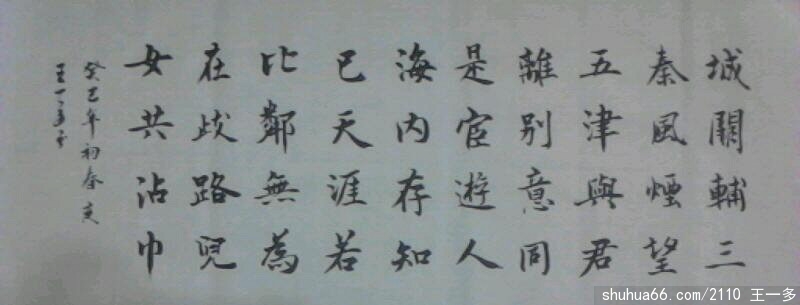 城闕輔三
秦風煙望
五津與君
離別意同
是宦遊人
海內存知
己天涯若
比鄰無為
在歧路兒
女共沾巾
癸巳年初春
王一多
shuhua66.com/2110 王一多